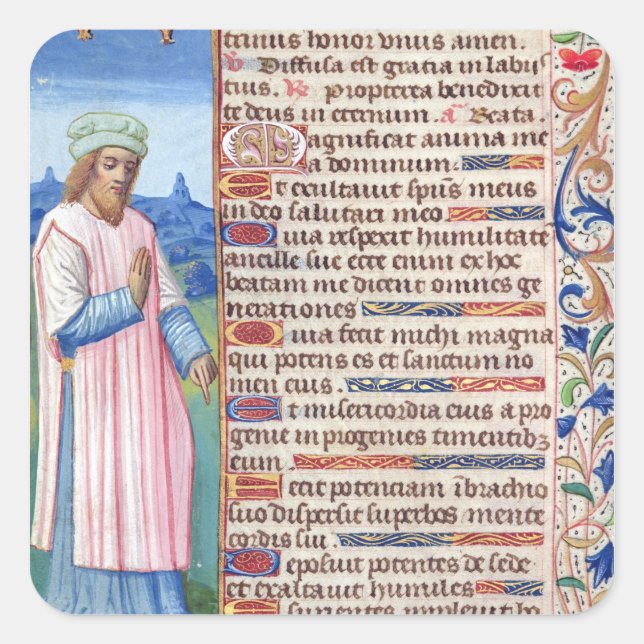 trinus honor vnius amen.
V Diffusa est gratia in labiis
tuis. R Propterea benedixit
te deus in eternum. a Beata.
Magnificat anima me
a dominum.
Et exultauit spūs meus
in deo salutari meo
Quia respexit humilitatē
ancille sue ecce enim ex hoc
beatam me dicent omnes ge
nerationes
Quia fecit michi magna
qui potens es et sanctum no
men eius.
Et misericordia eius a pro
genie in progenies timentibz
eum.
Fecit potenciam ī brachio
suo dispersit superbos mente
cordis sui
Deposuit potentes de sede
et exaltauit humiles
Esurientes impleuit bo